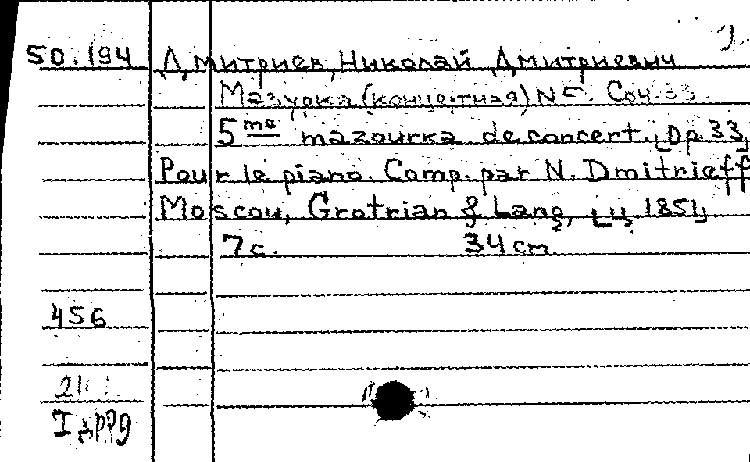 50.194 Дмитриев, Николай Дмитриевич
Мазурка (концертная) № 5. Соч. 33
5me mazourka de concert. Op. 33,
Pour le piano. Comp. par N. Dmitrieff
Moscou, Grotrian & Lang, [ц. 1851]
7 с. 34 cm
456